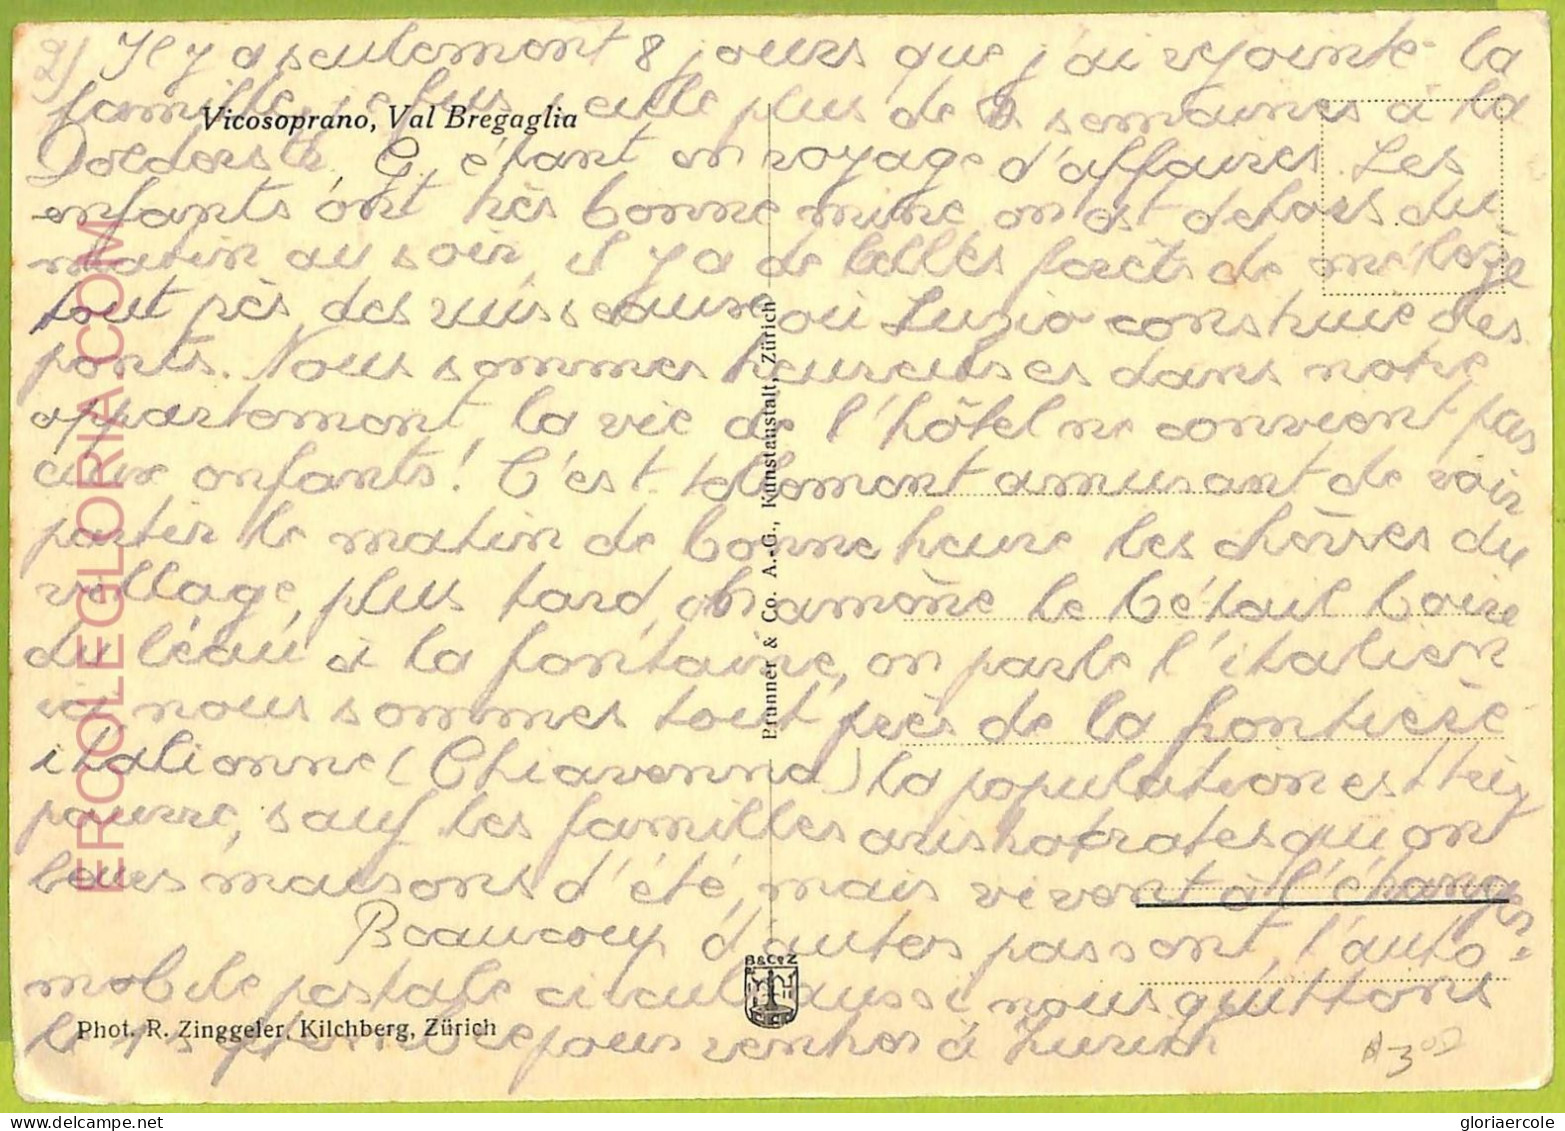 2) Il y a seulement 8 jours que j'ai rejointe la
famille, je fus seule plus de 2 semaines à la
Vicosoprano, Val Bregaglia
Dolderstr. G. étant en voyage d'affaires. Les
enfants ont très bonne mine on est dehors du
matin au soir, il y a de belles forêts de mélèze
tout près des ruisseaux où Luzio construie des
ponts. Nous sommes heureuses dans notre
appartement, la vie de l'hôtel ne convient pas
aux enfants! C'est tellement amusant de voir
partir le matin de bonne heure les chèvres du
village, plus tard, on amène le bétail boire
du l'eau à la fontaine, on parle l'italien
ici nous sommes tout près de la frontière
italienne (Chiavenna) la population est très
pauvre, sauf les familles aristocrates qui ont
leurs maisons d'été, mais vivent à l'étranger.
Beaucoup d'autos passent, l'auto-
mobile postale circule aussi, nous quittons
Phot. R. Zinggeler, Kilchberg, Zürich
le 15 pour rentrer à Zurich
Brunner & Co. A.-G., Kunstanstalt, Zürich
B&C°Z
ERCOLEGLORIA.COM
gloriaercole